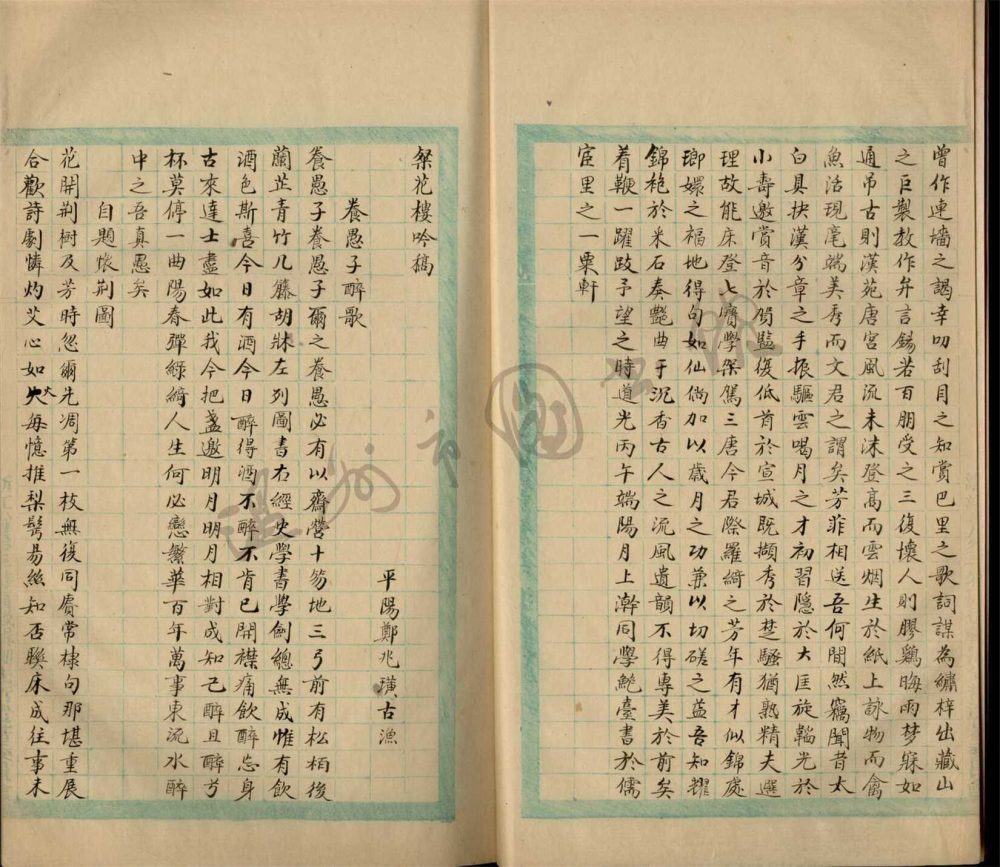 曾作連墻之謁幸叨刮目之知賞巴里之歌詞謀為繡梓出藏山
之巨製教作弁言錫若百朋受之三復懷人則膠鷄晦雨夢寐如
通吊古則漢苑唐宮風流未沬登高而雲烟生於紙上詠物而禽
魚活現毫端美秀而文君之謂矣芳菲相送吾何間然竊聞昔太
白具抉漢分章之手振驅雲喝月之才初習隱於大匡旋韜光於
小壽邀賞音於賀監復低首於宣城既擷秀於楚騷猶熟精夫選
理故能床登七寶學架駕三唐今君際羅綺之芳年有才似錦處
瑯嬛之福地得句如仙倘加以歲月之功兼以切磋之益吾知耀
錦袍於米石奏艷曲于沉香古人之流風遺韻不得專美於前矣
着鞭一躍跂予望之時道光丙午端陽月上澣同學鮑臺書於儒
宦里之一粟軒
粲花樓吟稿
平陽鄭兆璜古漁
養愚子醉歌
養愚子養愚子爾之養愚必有以齋營十笏地三弓前有松栢後
蘭芷青竹几籐胡牀左列圖書右經史學書學劍總無成惟有飲
酒色斯喜今日有酒今日醉得酒不醉不肯已開襟痛飲醉忘身
古來達士盡如此我今把盞邀明月明月相對成知己醉且醉兮
杯莫停一曲陽春彈綠綺人生何必戀繁華百年萬事東流水醉
中之吾真愚矣
自題悵荆圖
花開荆樹及芳時忽爾先凋第一枝無復同賡常棣句那堪重展
合歡詩劇憐灼艾心如火每憶推梨鬢昜絲知否聯床成往事未